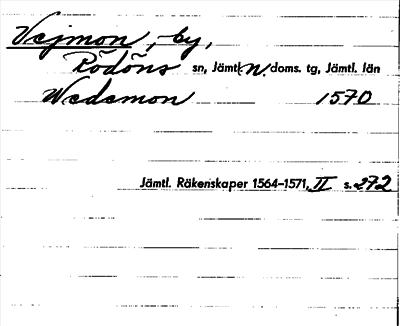 Vejmon, by,
Rödöns sn, Jämtl. n. doms. tg, Jämtl. län
Wedemon 1570
Jämtl. Räkenskaper 1564–1571, II s. 272